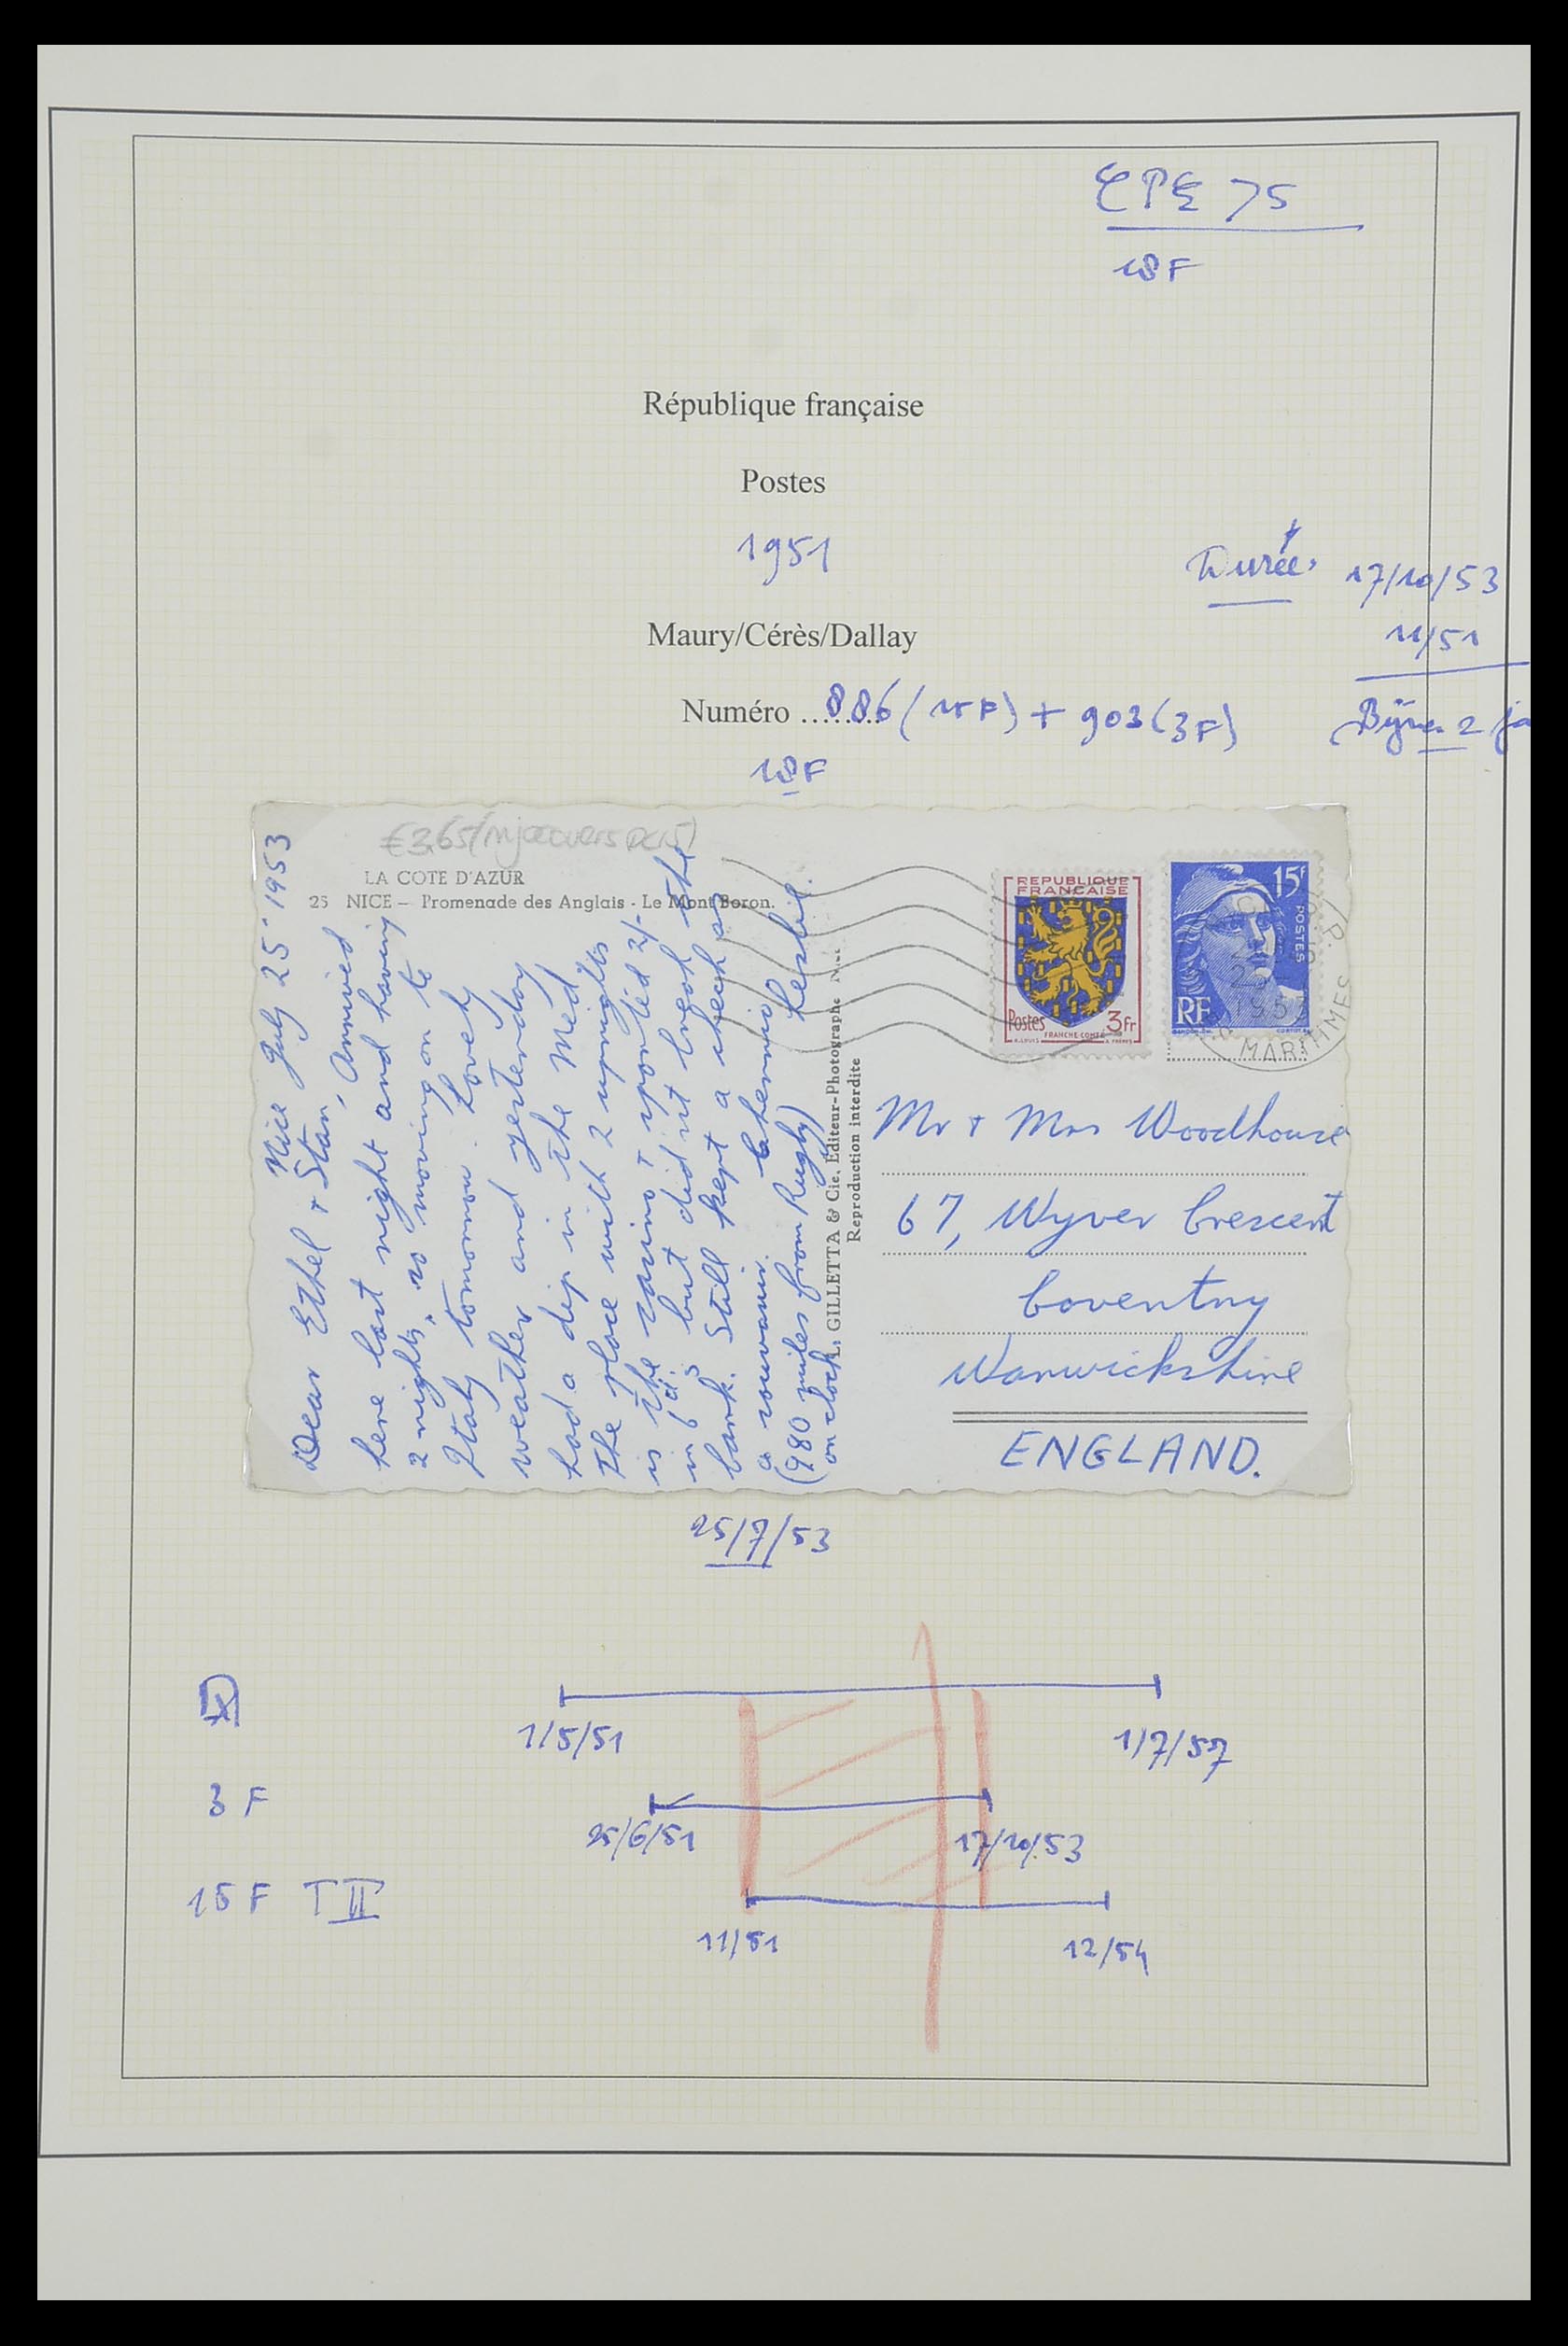 CPE 75
18F
République française
Postes
1951
Durée
17/10/53
11/51
Maury/Cérès/Dallay
Numéro ........ 886 (15F) + 903 (3F)
2 ja
18F
€3,65
LA COTE D'AZUR
25 NICE – Promenade des Anglais - Le Mont Boron.
Nice July 25" 1953
Dear Ethel + Stan, Arrived
here last night and having
2 nights, so moving on to
Italy tomorrow. Lovely
weather and yesterday
had a dip in the Med
The place with 2 uprights
is the casino, + sported 2/-
in 6d. s but didnt break the
bank. Still kept a check as
a souvenir.
Leslie.
(980 miles from Rugby)
on clock
L. GILLETTA & Cie, Editeur-Photographe Nice
Reproduction interdite
REPUBLIQUE
FRANÇAISE
Postes 3Fr
FRANCHE-COMTÉ
15F
POSTES
RF
1953
MARITIMES
Mr + Mrs Woodhouse
67, Wyver Crescent
Coventry
Warwickshire
ENGLAND.
25/7/53
1/5/51
1/7/57
3 F
25/6/51
17/10/53
15 F T II
11/51
12/54